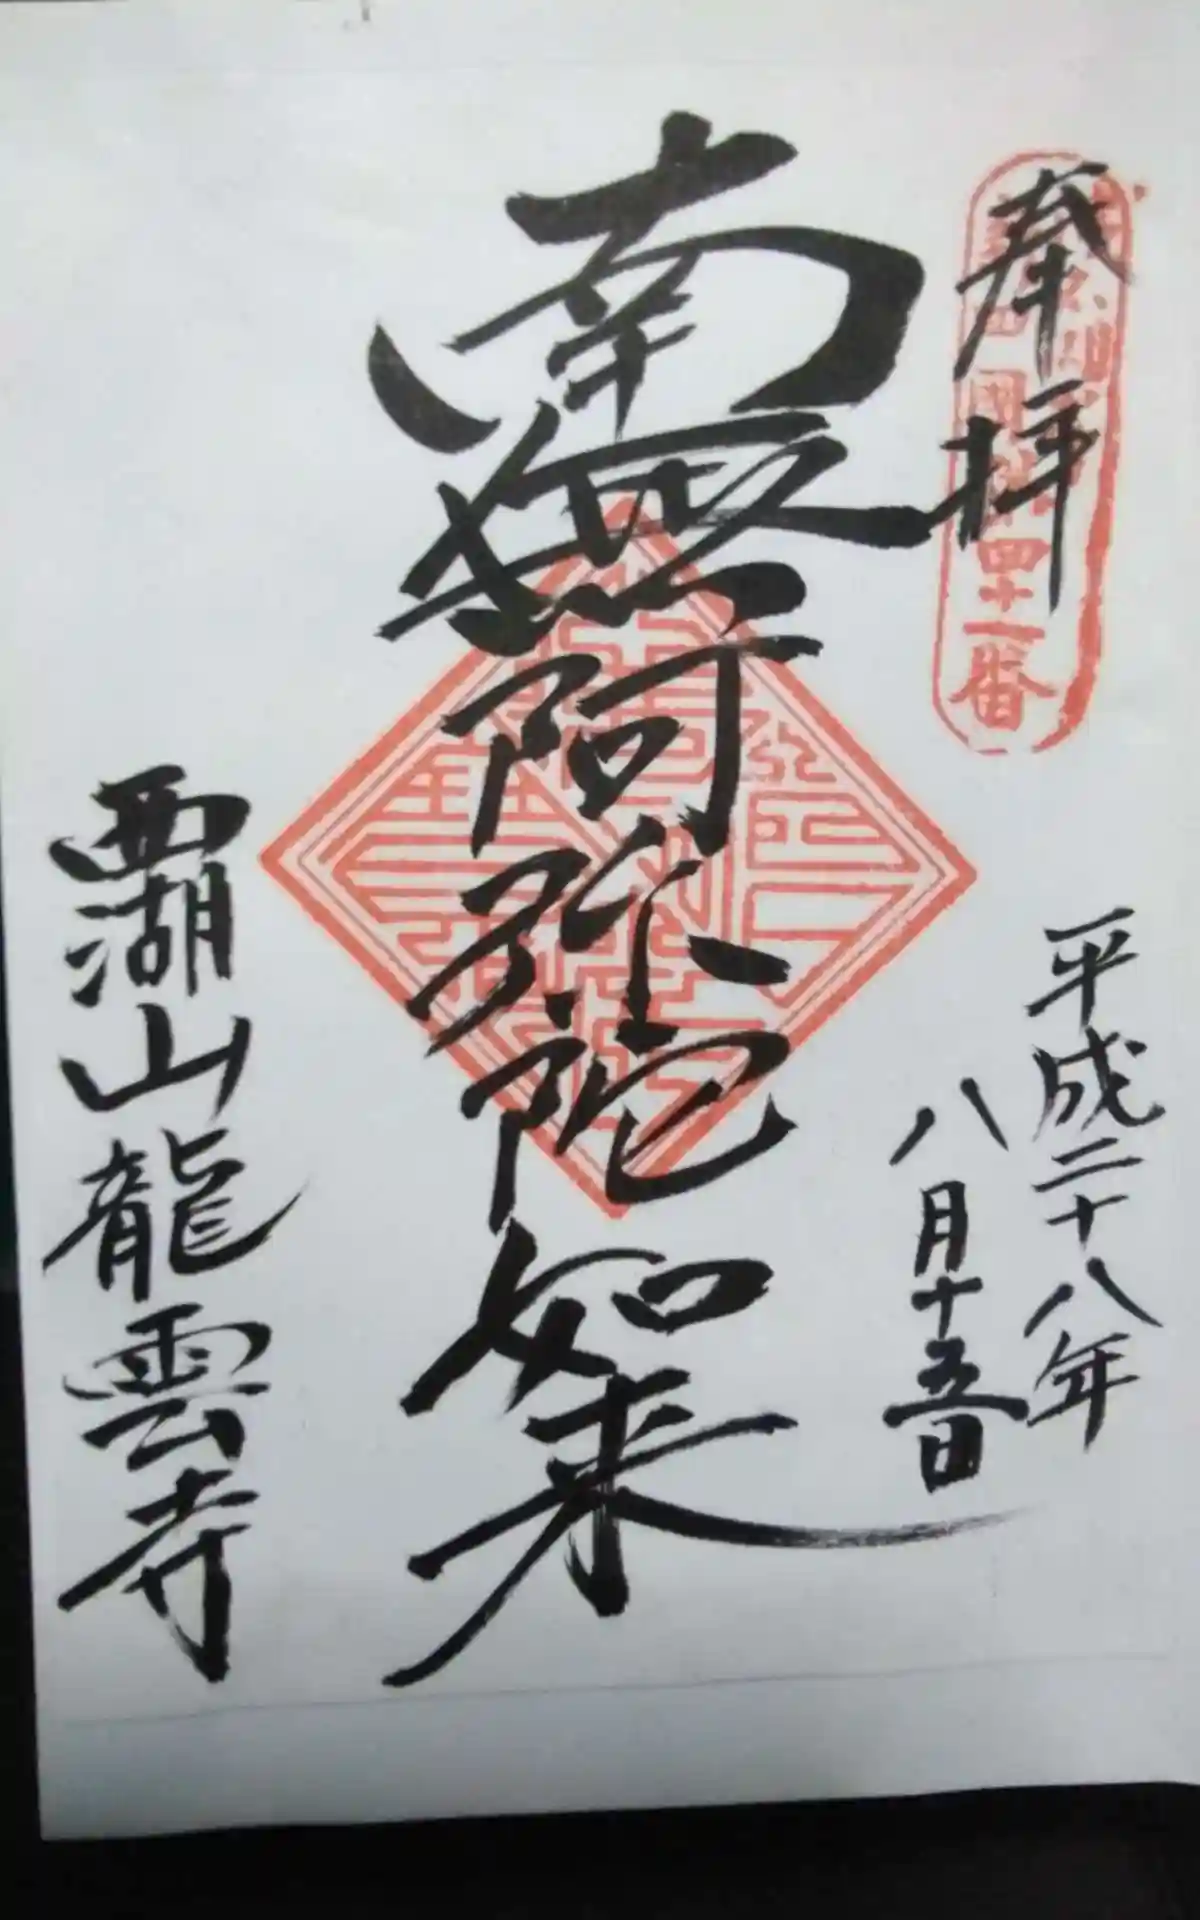 奉拝
四国
四十一番
平成二十八年
八月十五日
南無阿弥陀如来
覇湖山龍雲寺